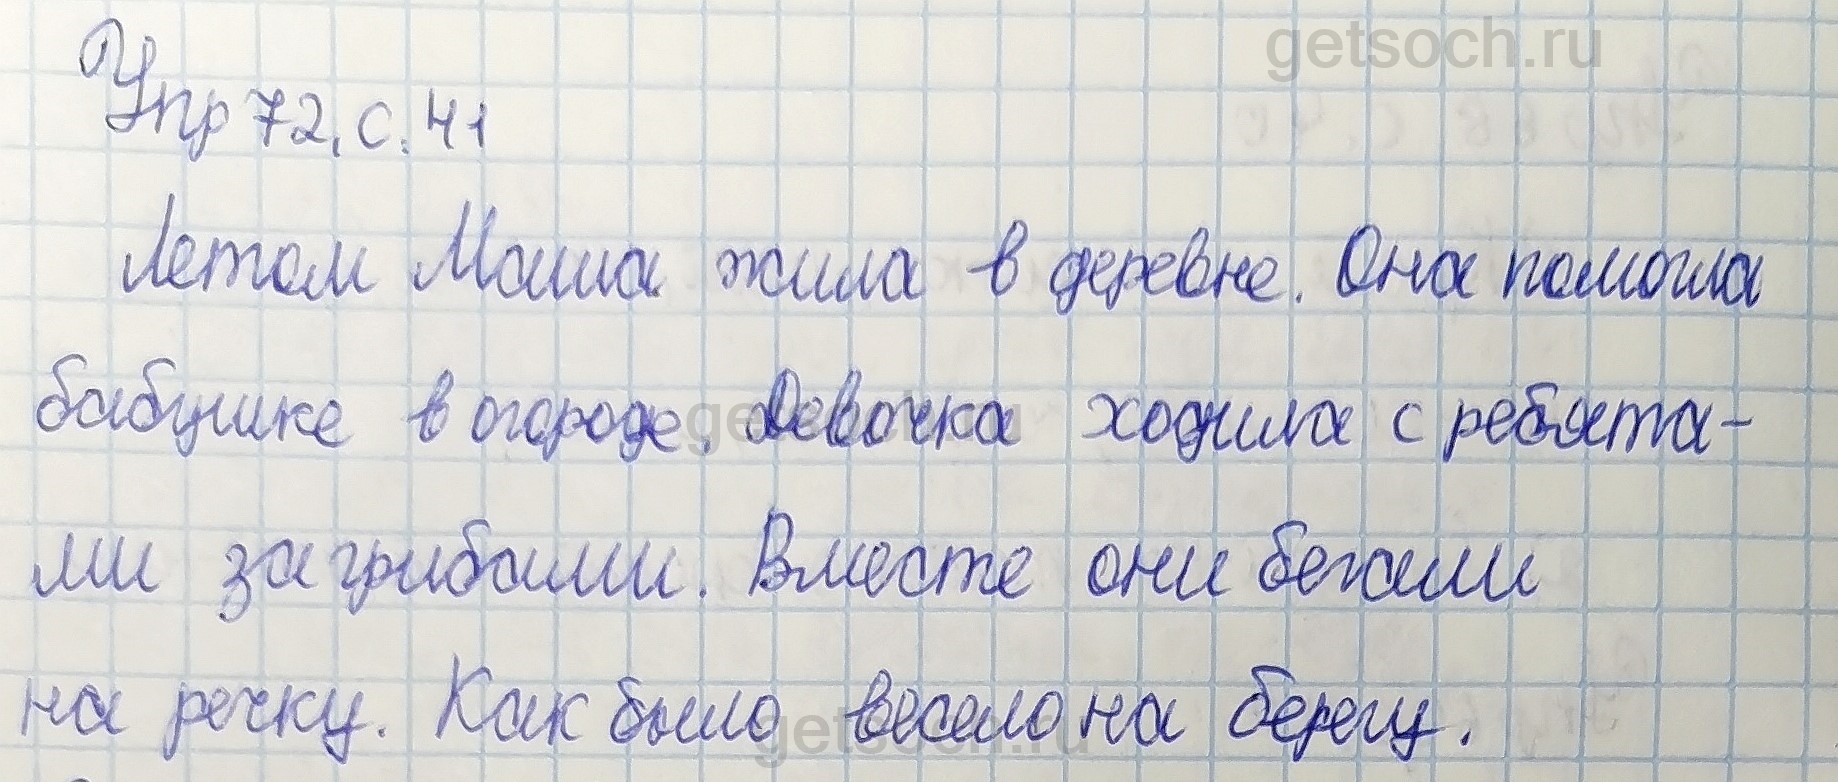 getsoch.ru
Упр 72, с. 41
Летом Маша жила в деревне. Она помогла
бабушке в огороде. Девочка ходила с ребята-
getsoch.ru
ми за грибами. Вместе они бежали
на речку. Как было весело на берегу.
getsoch.ru